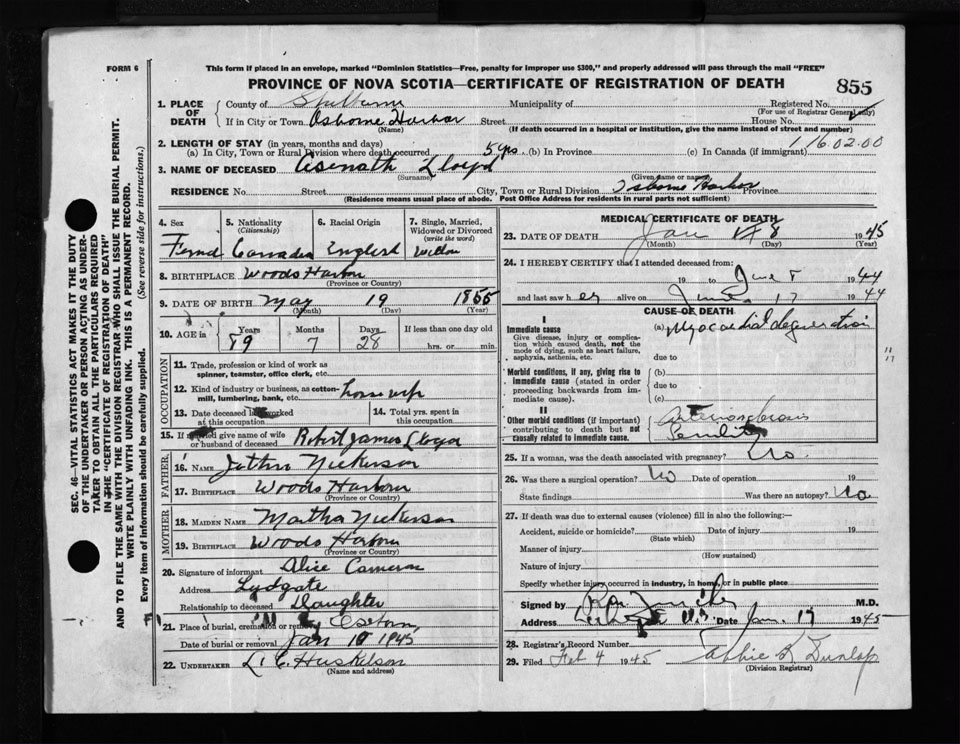 FORM 6
This form if placed in an envelope, marked "Dominion Statistics—Free, penalty for improper use $300," and properly addressed will pass through the mail "FREE"
PROVINCE OF NOVA SCOTIA—CERTIFICATE OF REGISTRATION OF DEATH
855
1. PLACE OF DEATH
County of Shelburne Municipality of Registered No.
(For use of Registrar General only)
If in City or Town Osborne Harbor Street House No.
(Name) (If death occurred in a hospital or institution, give the name instead of street and number)
2. LENGTH OF STAY (in years, months and days)
116.02.00
(a) In City, Town or Rural Division where death occurred 5 yrs. (b) In Province (c) In Canada (if immigrant)
3. NAME OF DECEASED Asenath Lloyd
(Surname) (Given name or names)
RESIDENCE No. Street City, Town or Rural Division Osborne Harbor Province
(Residence means usual place of abode. Post Office Address for residents in rural parts not sufficient)
4. Sex 5. Nationality (Citizenship) 6. Racial Origin 7. Single, Married, Widowed or Divorced (write the word)
English
8. BIRTHPLACE Woods Harbour
(Province or Country)
9. DATE OF BIRTH May 19 1855
(Month) (Day) (Year)
10. AGE in Years Months Days If less than one day old
89 7 28 hrs. or min.
OCCUPATION
11. Trade, profession or kind of work as spinner, teamster, office clerk, etc.
12. Kind of industry or business, as cotton-mill, lumbering, bank, etc. housewife
13. Date deceased last worked at this occupation
14. Total yrs. spent in this occupation
15. If married give name of wife or husband of deceased Robert James Lloyd
FATHER
16. NAME Nickerson
17. BIRTHPLACE Woods Harbour
(Province or Country)
MOTHER
18. MAIDEN NAME Martha Nickerson
19. BIRTHPLACE Woods Harbour
(Province or Country)
20. Signature of informant Alice Cameron
Address Lydgate
Relationship to deceased Daughter
21. Place of burial, cremation or removal
Date of burial or removal Jan 19 1945
22. UNDERTAKER L. C. Huskelson
(Name and address)
MEDICAL CERTIFICATE OF DEATH
23. DATE OF DEATH Jan 8 1945
(Month) (Day) (Year)
24. I HEREBY CERTIFY that I attended deceased from:
19 to June 8 1944
and last saw her alive on June 17 1944
CAUSE OF DEATH
I
Immediate cause
Give disease, injury or complication which caused death, not the mode of dying, such as heart failure, asphyxia, asthenia, etc.
(a) Myocardial degeneration
due to
Morbid conditions, if any, giving rise to immediate cause (stated in order proceeding backwards from immediate cause).
(b)
due to
(c)
II
Other morbid conditions (if important) contributing to death but not causally related to immediate cause.
Arteriosclerosis
Senility
25. If a woman, was the death associated with pregnancy? No.
26. Was there a surgical operation? No Date of operation 19
State findings Was there an autopsy? No
27. If death was due to external causes (violence) fill in also the following:—
Accident, suicide or homicide? Date of injury 19
(State which)
Manner of injury
(How sustained)
Nature of injury
Specify whether injury occurred in industry, in home, or in public place
Signed by M.D.
Address Date Jan. 17 1945
28. Registrar's Record Number
29. Filed Feb 4 1945 Abbie R Dunlap
(Division Registrar)
SEC. 46—VITAL STATISTICS ACT MAKES IT THE DUTY
OF THE UNDERTAKER OR PERSON ACTING AS UNDER-
TAKER TO OBTAIN ALL THE PARTICULARS REQUIRED
IN THE "CERTIFICATE OF REGISTRATION OF DEATH"
AND TO FILE THE SAME WITH THE DIVISION REGISTRAR WHO SHALL ISSUE THE BURIAL PERMIT.
WRITE PLAINLY WITH UNFADING INK. THIS IS A PERMANENT RECORD.
Every item of information should be carefully supplied. (See reverse side for instructions.)